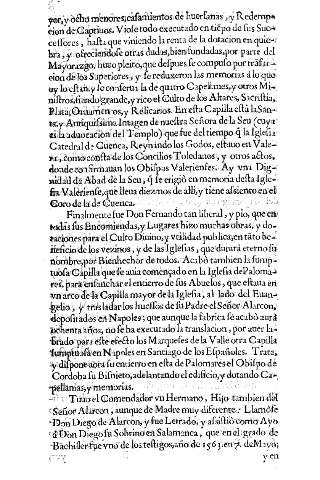 yor, y ocho menores; casamientos de huerfanas, y Redemp-
cion de Captiuos. Viose todo executado en tiẽpo de sus Suc-
cessores, hasta que viniendo la renta de la dotacion en quie-
bra, y ofreciendose otras dudas, bien fundadas, por parte del
Mayorazgo, huuo pleito, que despues se compuso por trãsac-
cion de los Superiores, y se reduxeron las memorias à lo que
oy lo estàn, y se conserua la de quatro Capellanes, y otros Mi-
nistros, siendo grande, y rico el Culto de los Altares, Sacristia,
Plata, Ornamentos, y Relicarios. En esta Capilla està la San-
ta, y Antiquissima Imagen de nuestra Señora de la Seu (cuya
es la aduocacion del Templo) que fue del tiempo q̃ la Iglesia
Catedral de Cuenca, Reynando los Godos, estuuo en Vale-
ra, como consta de los Concilios Toledanos, y otros actos,
donde confirmauan los Obispos Valerienses. Ay vna Dig-
nidad de Abad de la Seu, q̃ se erigiò en memoria desta Igle-
sia Valeriense, que lleua diezmos de allì, y tiene assiento en el
Coro de la de Cuenca.
Finalmente fue Don Fernando tan liberal, y pio, que en
todas sus Encomiendas, y Lugares hizo muchas obras, y do-
taciones para el Culto Diuino, y vtilidad publica, en tãto be-
neficio de los vezinos, y de las Iglesias, que durarà eterno su
nombre, por Bienhechor de todos. Acabò tambien la sump-
tuosa Capilla que se auia començado en la Iglesia de Paloma-
res, para ensanchar el entierro de sus Abuelos, que estaua en
vn arco de la Capilla mayor de la Iglesia, al lado del Euan-
gelio, y trasladar los huessos de su Padre el Señor Alarcon,
depositados en Napoles; y aunque la fabrica se acabò aurà
ochenta años, no se ha executado la translacion, por auer la-
brado para este efecto los Marqueses de la Valle otra Capilla
sumptuosa en Napoles en Santiago de los Españoles. Trata,
y dispone aora su entierro en esta de Palomares el Obispo de
Cordoba su Bisnieto, adelantando el edificio, y dotando Ca-
pellanias, y memorias.
Tuuo el Comendador vn Hermano, Hijo tambien del
Señor Alarcon, aunque de Madre muy diferente. Llamòse
Don Diego de Alarcon, y fue Letrado, y assistiò como Ayo
à Don Diego su Sobrino en Salamanca, que en el grado de
Bachiller fue vno de los testigos, año de 1563. en 7. de Mayo;
y en